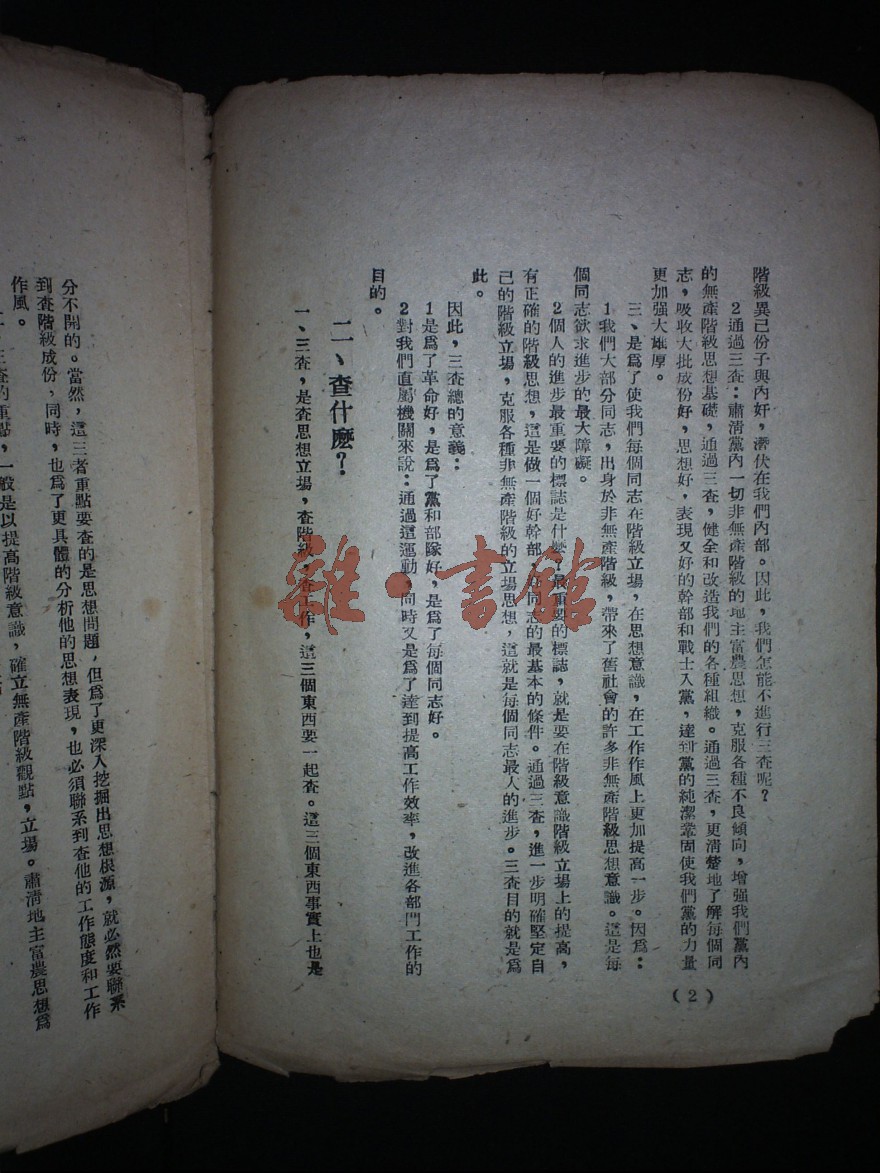 階級異己份子與內奸，潛伏在我們內部。因此，我們怎能不進行三査呢？
2通過三査：肅淸黨內一切非無產階級的地主富農思想，克服各種不良傾向，增强我們黨內
的無產階級思想基礎，通過三査，健全和改造我們的各種組織。通過三査，更淸楚地了解每個同
志，吸收大批成份好，思想好，表現又好的幹部和戰士入黨，達到黨的純潔鞏固使我們黨的力量
更加强大雄厚。
三、是爲了使我們每個同志在階級立場，在思想意識，在工作作風上更加提高一步。因爲：
1我們大部分同志，出身於非無產階級，帶來了舊社會的許多非無產階級思想意識。這是每
個同志欲求進步的最大障礙。
2個人的進步最重要的標誌是什麼？最重要的標誌，就是要在階級意識階級立場上的提高，
有正確的階級思想，這是做一個好幹部，好同志的最基本的條件。通過三査，進一步明確堅定自
己的階級立場，克服各種非無產階級的立場思想，這就是每個同志最人的進步。三査目的就是爲
此。
因此，三査總的意義：
1是爲了革命好，是爲了黨和部隊好，是爲了每個同志好。
2對我們直屬機關來說：通過這運動，同時又是爲了達到提高工作效率，改進各部門工作的
目的。
二、査什麼？
一、三査，是査思想立場，査階級，査工作，這三個東西要一起査。這三個東西事實上也是
(2)
分不開的。當然，這三者重點要査的是思想問題，但爲了更深入挖掘出思想根源，就必然要聯系
到査階級成份，同時，也爲了更具體的分析他的思想表現，也必須聯系到査他的工作態度和工作
作風。
二、三査的重點，一般是以提高階級意識，確立無產階級觀點，立場。肅淸地主富農思想爲
雜·書館